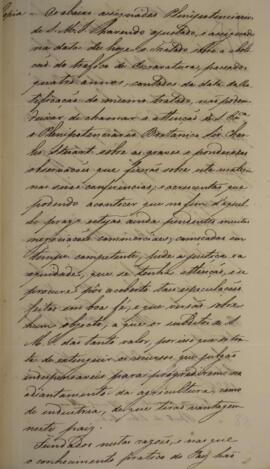 Copia = Os abaixo assignados Plenipotenciarios
de S. M. I. havendo ajustado, e assignado
na data de hoje o Tratado sobre a aboli-
ção do trafico de Escravatura, passados
quatro annos, contados da data da Ra-
tificação do mesmo tratado, não podem
deixar de chamar a attenção de S. Exª
o Plenipotenciario Britanico Sir Char-
les Stuart sobre as graves e ponderosas
observações que fizerão sobre esta materia
nas suas conferencias, e acrescentar que
podendo acontecer que no fim d'aquel-
le prazo estejão ainda pendentes muitas
negociações commerciaes, começadas em
tempo competente, pede a justiça e a
equidade, que se tenha attenção, e se
procure pôr a coberto essas especulações
feitas em boa fé, e que versão sobre
hum objecto, a que os subditos de S.
M. I. dão tanto valor, por isso que se tra-
ta de extinguir os recursos que julgão
indispensaveis para progredirem no
adiantamento da agricultura, como
de industria, de que tirão vantagem
neste paiz.
Fundados nestas razões, e nas que
o conhecimento pratico do Paiz lhes